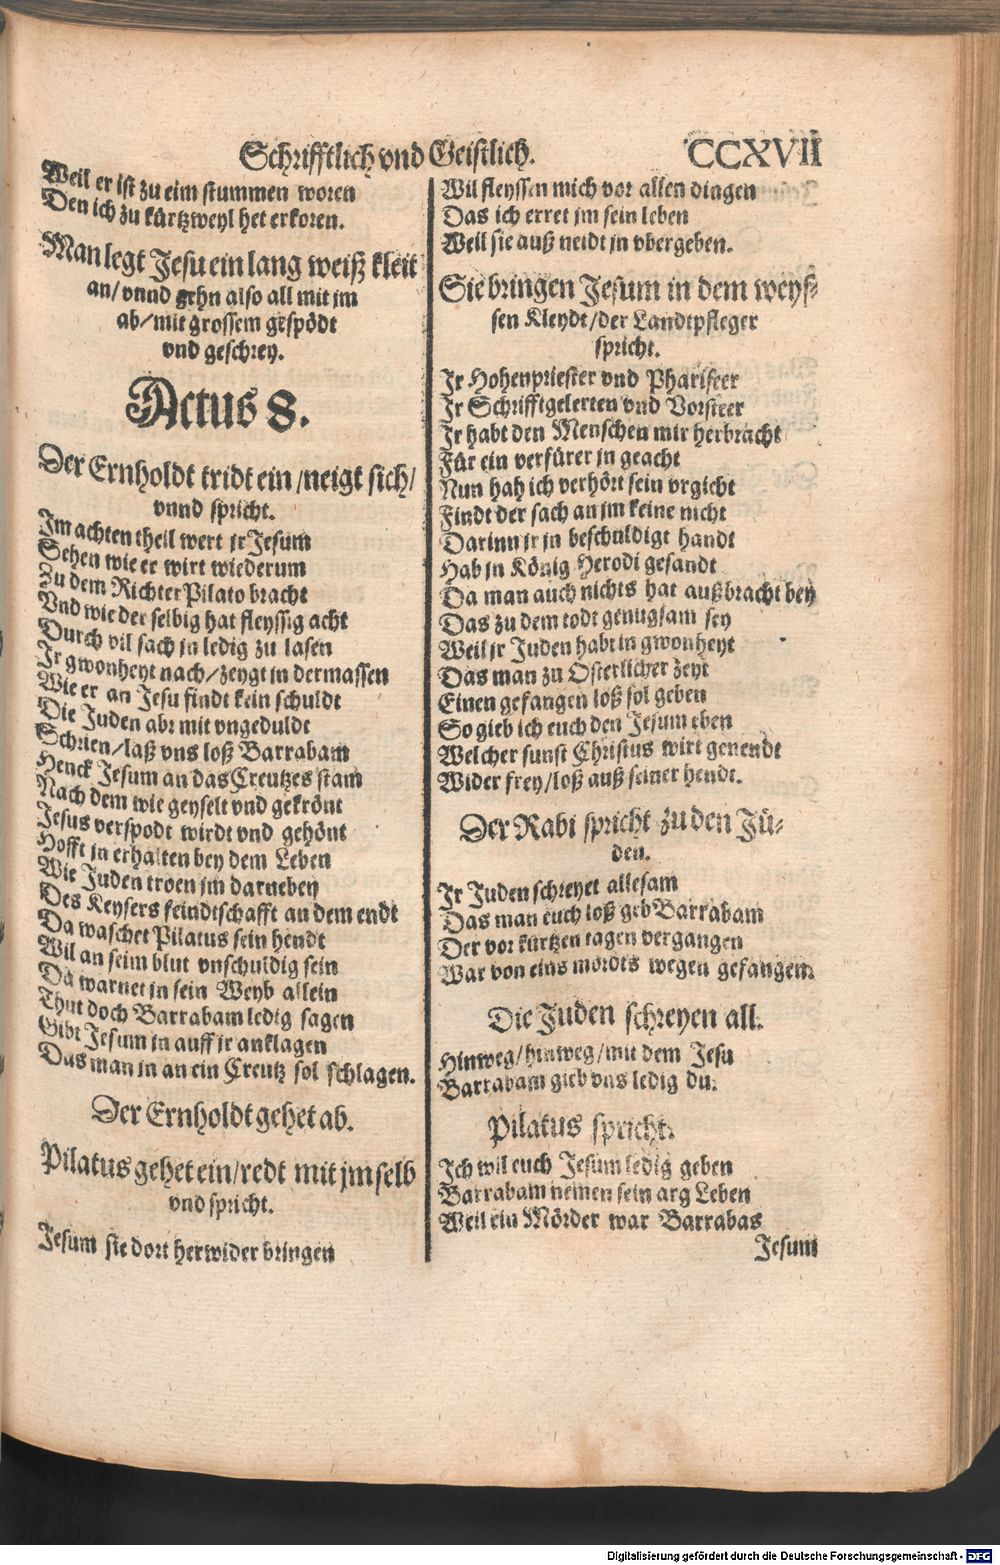 Schrifftlich vnd Geistlich. CCXVII
Weil er ist zu eim stummen woren
Den ich zu kürtzweyl het erkoren.
Man legt Jesu ein lang weiß kleit
an/vnnd gehn also all mit jm
ab/mit grossem gespödt
vnd geschrey.
Actus 8.
Der Ernholdt tridt ein/neigt sich/
vnnd spricht.
Im achten theil wert jr Jesum
Sehen wie er wirt wiederum
Zu dem Richter Pilato bracht
Vnd wie der selbig hat fleyssig acht
Durch vil sach jn ledig zu lasen
Jr gwonheyt nach/zeygt in dermassen
Wie er an Jesu findt kein schuldt
Die Juden abr mit vngeduldt
Schrien/laß vns loß Barrabam
Henck Jesum an das Creutzes stam
Nach dem wie geyselt vnd gekrönt
Jesus verspodt wirdt vnd gehönt
Hofft jn erhalten bey dem Leben
Wie Juden troen jm darnebey
Des Keysers feindtschafft an dem endt
Da waschet Pilatus sein hendt
Wil an seim blut vnschuldig sein
Da warnet jn sein Weyb allein
Thut doch Barrabam ledig sagen
Gibt Jesum jn auff jr anklagen
Das man jn an ein Creutz sol schlagen.
Der Ernholdt gehet ab.
Pilatus gehet ein/redt mit jm selb
vnd spricht.
Jesum sie dort herwider bringen
Wil fleyssen mich vor allen dingen
Das ich erret jm sein leben
Weil sie auß neidt jn vbergeben.
Sie bringen Jesum in dem weys-
sen Kleydt/der Landtpfleger
spricht.
Jr Hohenpriester vnd Phariseer
Jr Schrifftgelerten vnd Vorsteer
Jr habt den Menschen mir herbracht
Für ein verfürer jn geacht
Nun hab ich verhört sein vrgicht
Findt der sach an jm keine nicht
Darinn jr jn beschuldigt handt
Hab jn König Herodi gesandt
Da man auch nichts hat außbracht bey
Das zu dem todt genugsam sey
Weil jr Juden habt in gwonheyt
Das man zu Osterlicher zeyt
Einen gefangen loß sol geben
So gieb ich euch den Jesum eben
Welcher sunst Christus wirt genendt
Wider frey/loß auß seiner hendt.
Der Rabi spricht zu den Jü-
den.
Jr Juden schreyet allesam
Das man euch loß geb Barrabam
Der vor kürtzen tagen vergangen
War von eins mordts wegen gefangen.
Die Juden schreyen all.
Hinweg/hinweg/mit dem Jesu
Barrabam gieb vns ledig du.
Pilatus spricht.
Ich wil euch Jesum ledig geben
Barrabam nemen sein arg Leben
Weil ein Mörder war Barrabas
Jesum
Digitalisierung gefördert durch die Deutsche Forschungsgemeinschaft - DFG